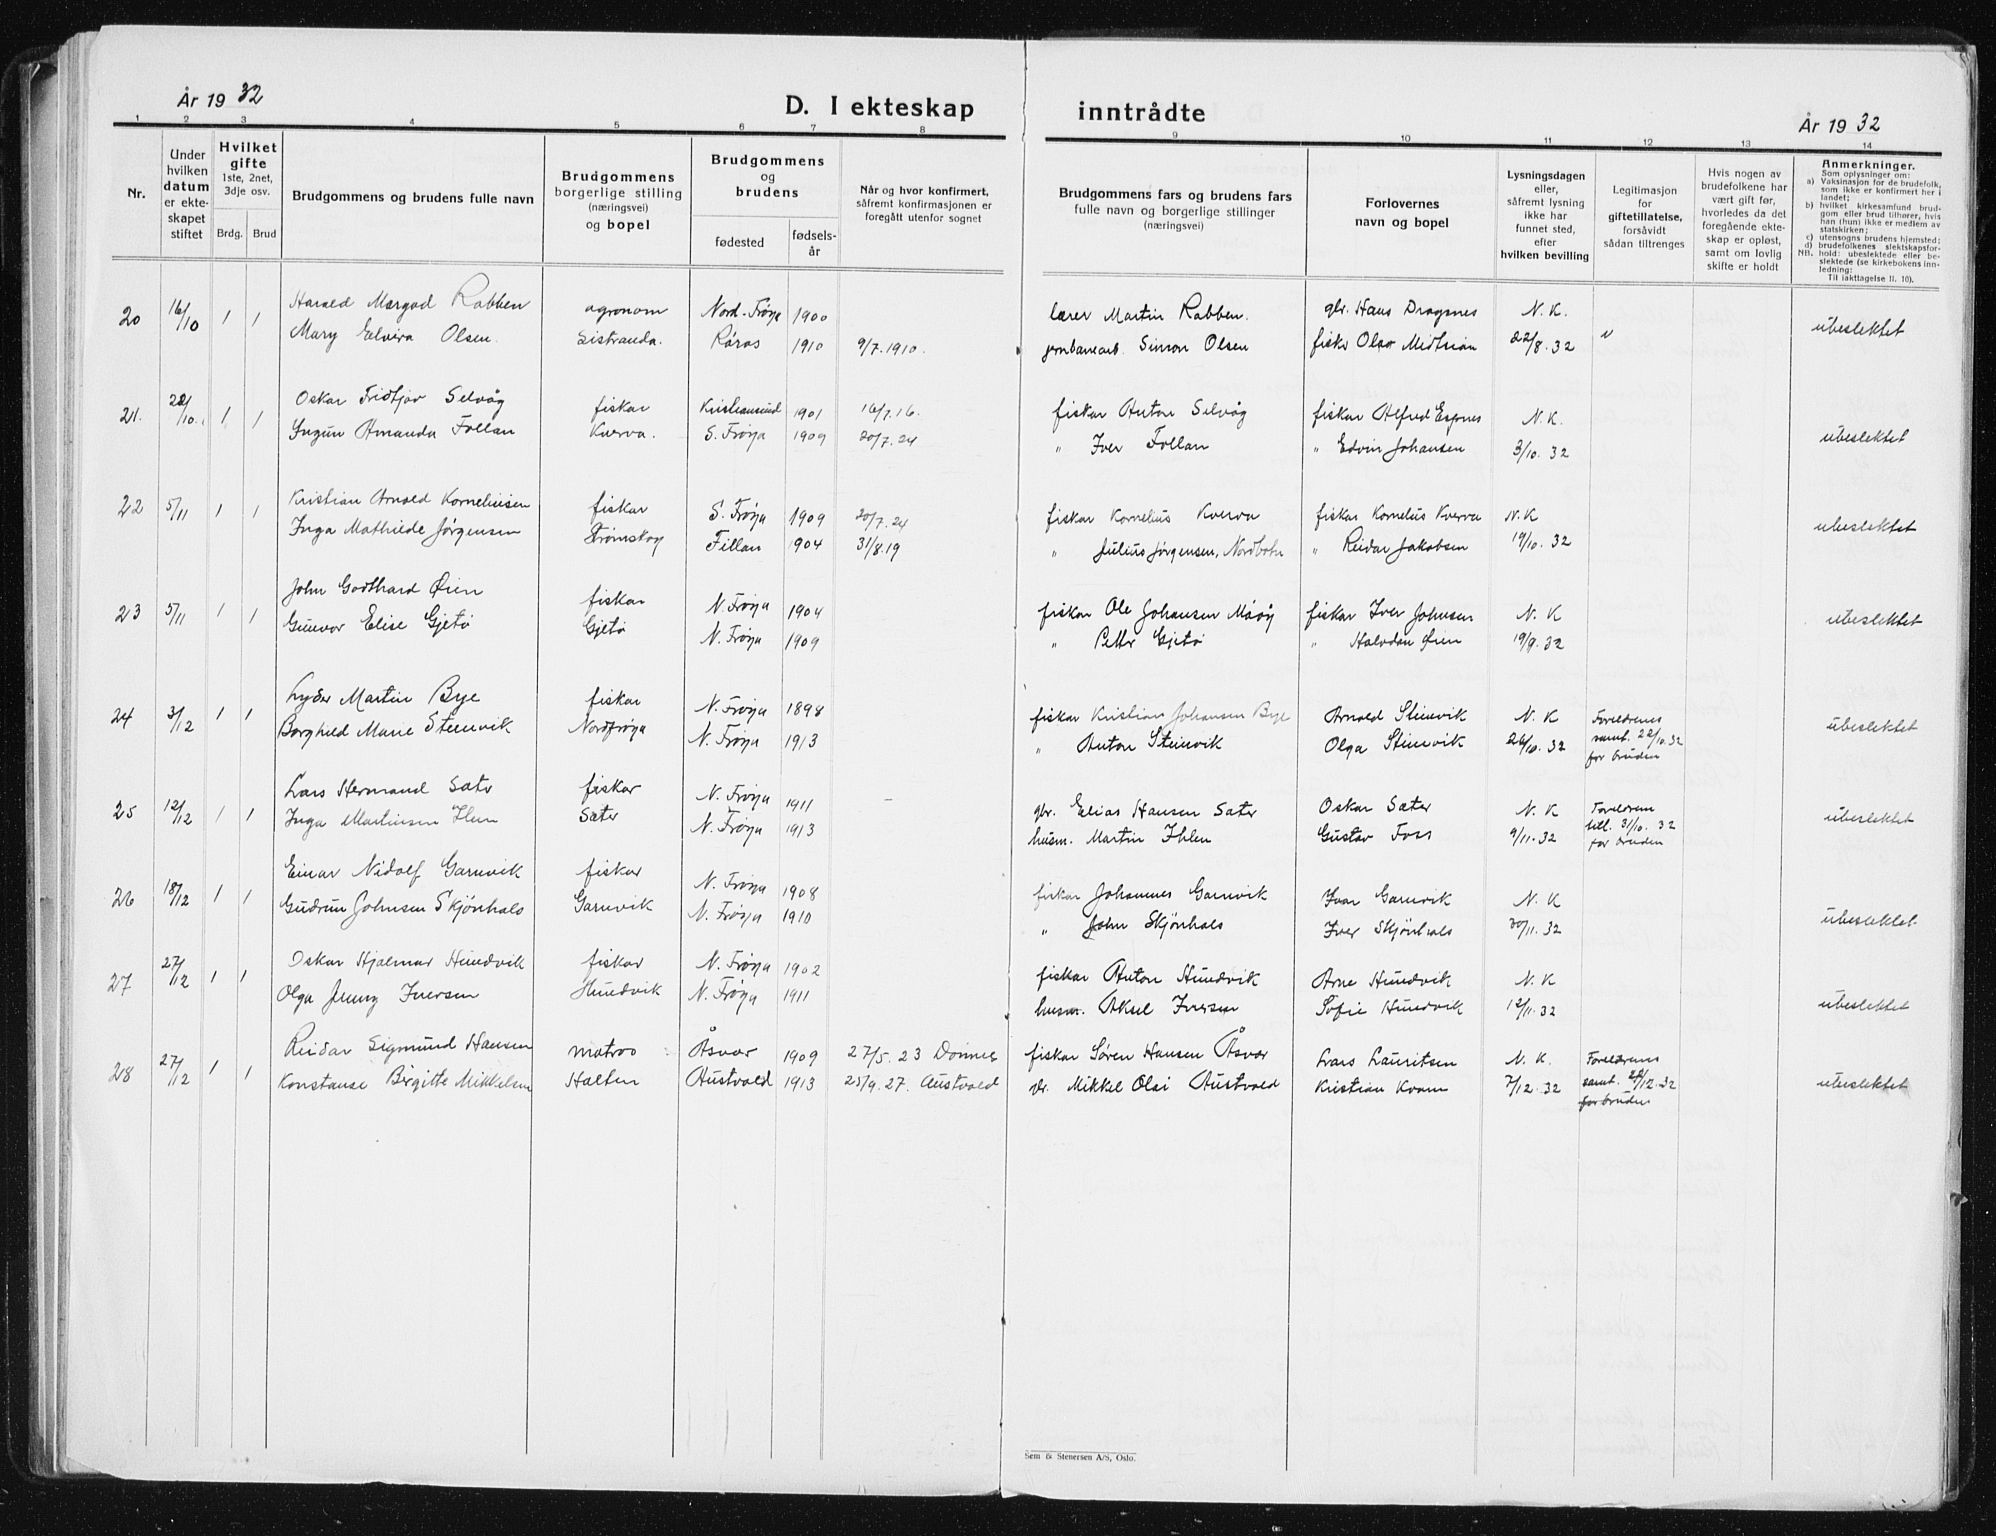 År 19 32
D. I ekteskap inntrådte
År 19 32
1 2 3 4 5 6 7 8 9 10 11 12 13 14
Nr.
Under hvilken datum er ekteskapet stiftet
Hvilket gifte
1ste, 2net, 3dje osv.
Brdg. Brud
Brudgommens og brudens fulle navn
Brudgommens borgerlige stilling (næringsvei) og bopel
Brudgommens og brudens
fødested
fødselsår
Når og hvor konfirmert, såfremt konfirmasjonen er foregått utenfor sognet
Brudgommens fars og brudens fars fulle navn og borgerlige stillinger (næringsvei)
Forlovernes navn og bopel
Lysningsdagen eller, såfremt lysning ikke har funnet sted, efter hvilken bevilling
Legitimasjon for giftetillatelse, forsåvidt sådan tiltrenges
Hvis nogen av brudefolkene har vært gift før, hvorledes da det foregående ekteskap er opløst, samt om lovlig skifte er holdt
Anmerkninger.
Som oplysninger om:
a) Vaksinasjon for de brudefolk, som ikke er konfirmert her i landet;
b) hvilket kirkesamfund brudgom eller brud tilhører, hvis han (hun) ikke er medlem av statskirken;
c) utensogns brudens hjemsted;
d) brudefolkenes slektskapsforhold: ubeslektede eller beslektede (se kirkebokens innledning:
NB.
Til iakttagelse II. 10).
20 16/10 1 1 Harald Margod Rabben agronom Nord-Frøya 1900 lærer Martin Rabben. gbr. Hans Dragsnes N. K.
Mary Elvira Olsen. Sistranda. Røros 1910 9/7.1910. jernbanearb. Simon Olsen fisker Olav Midtsian 22/8. 32 ubeslektet
21. 22/10. 1 1 Oskar Fridtjov Selvåg fiskar Kristiansund 1901 16/7.16. fiskar Anton Selvåg fiskar Alfred Espnes N. K.
Yngun Amanda Follan Kverva. S. Frøya 1909 20/7.24 " Iver Follan " Edvin Johansen 3/10. 32 ubeslektet
22 5/11 1 1 Kristian Arnold Korneliusen fiskar S. Frøya 1909 20/7.24 fiskar Kornelius Kverva fiskar Kornelius Kverva N. K
Inga Mathilde Jørgensen Strømskag Fillan 1904 31/8.19 " Julius Jørgensen, Nordbotn " Reidar Jakobsen 19/10. 32 ubeslektet
23 5/11 1 1 John Godthard Øien fiskar N. Frøya 1904 fiskar Ole Johansen Måøy fiskar Iver Johnsen N. K
Gunvor Elise Gjetø Gjetø N. Frøya 1909 " Petter Gjetø " Halvdan Øien 19/9. 32 ubeslektet
24 3/12 1 1 Lyder Martin Bye fiskar N. Frøya 1898 fiskar Kristian Johansen Bye Arnold Steinvik N. K Foreldrenes
Borghild Marie Steinvik Nordfrøya N. Frøya 1913 " Anton Steinvik Olga Steinvik 26/10. 32 samt. 22/10. 32 ubeslektet
for bruden
25 12/12 1 1 Lars Hermand Sæter fiskar N. Frøya 1911 - gbr. Elias Hansen Sæter Oskar Sæter N. K Foreldrenes
Inga Martinsen Ilen Sæter N. Frøya 1913 husm. Martin Ihlen Gustav Foss 9/11. 32 till. 31/10. 32 ubeslektet
for bruden
26 18/12 1 1 Einar Nidolf Garnvik fiskar N. Frøya 1908 fiskar Johannes Garnvik Ivar Garnvik N. K
Gudrun Johnsen Skjønhals Garnvik N. Frøya 1910 " John Skjønhals Iver Skjønhals 30/11. 32 ubeslektet
27 27/12 1 1 Oskar Hjalmar Hundvik fiskar N. Frøya 1902 fiskar Anton Hundvik Arne Hundvik N. K
Olga Jenny Iversen Hundvik N. Frøya 1911 husm. Aksel Iversen Sofie Hundvik 12/11. 32 ubeslektet
28 27/12 1 1 Reidar Sigmund Hansen matros Åsvær 1909 27/5. 23 Dønnes fiskar Søren Hansen Åsvær Lars Lauritsen N. K. Foreldrenes
Konstanse Birgitte Mikkelsen Halten Austvold 1913 25/9. 27. Austvold Mikkel Olai Austvold Kristian Kvam 7/12. 32 samt. 22/12. 32 ubeslektet
for bruden
Sem & Stenersen A/S, Oslo.